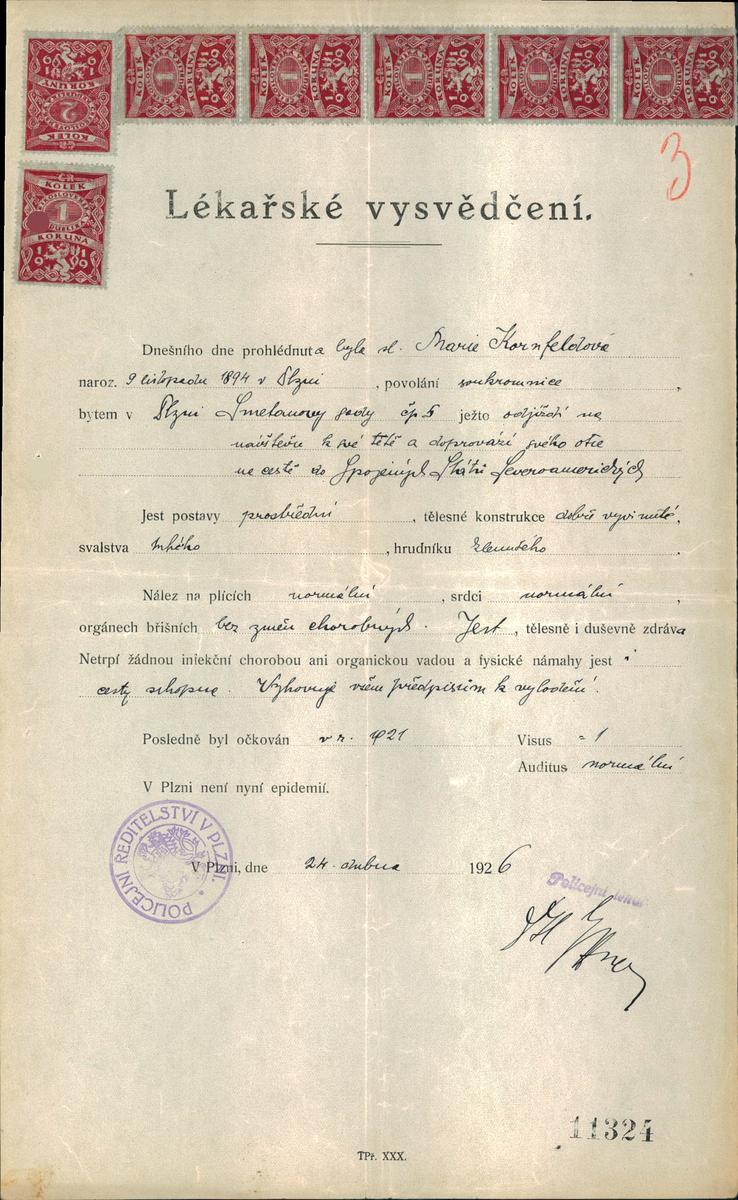 KOLEK 1 KORUNA 1919
KOLEK 1 KORUNA 1919
KOLEK 1 KORUNA 1919
KOLEK 1 KORUNA 1919
KOLEK 1 KORUNA 1919
KOLEK 2 KORUNY 1919
3
ČR
KOLEK
1
KORUNA
1919
Lékařské vysvědčení.
Dnešního dne prohlédnuta byla sl. Marie Kornfeldová
naroz. 9 listopadu 1894 v Plzni, povolání soukromnice,
bytem v Plzni Smetanovy sady čp 5 ježto odjíždí na
návštěvu k své tetě a doprovází svého otce
na cestě do Spojených Států Severoamerických
Jest postavy prostřední, tělesné konstrukce dobře vyvinuté,
svalstva mhého, hrudníku klenutého.
Nález na plicích normální, srdci normální,
orgánech břišních bez změn chorobných. Jest, tělesně i duševně zdráva
Netrpí žádnou infekční chorobou ani organickou vadou a fysické námahy jest i
cesty schopna. Vyhovuje všem předpisům k vylodění.
Posledně byl očkován v r. 1921 Visus = 1
Auditus normální
V Plzni není nyní epidemií.
POLICEJNÍ ŘEDITELSTVÍ V PLZNI.
V Plzni, dne 24. dubna 1926
Policejní lékař
11324
TPř. XXX.